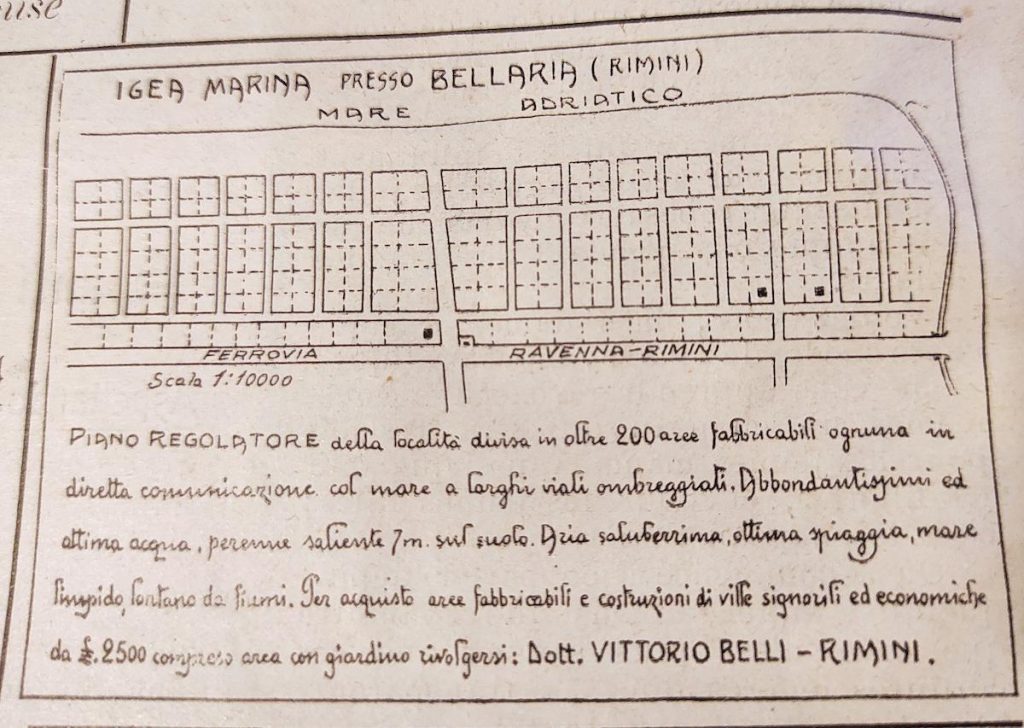 IGEA MARINA PRESSO BELLARIA (RIMINI)
MARE ADRIATICO
FERROVIA RAVENNA-RIMINI
Scala 1:10000
PIANO REGOLATORE della località divisa in oltre 200 aree fabbricabili ognuna in
diretta comunicazione col mare a larghi viali ombreggiati. Abbondantissimi ed
ottima acqua, perenne saliente 7m. sul suolo. Aria saluberrima, ottima spiaggia, mare
limpido, lontano da fiumi. Per acquisto aree fabbricabili e costruzioni di ville signorili ed economiche
da £. 2500 compreso area con giardino rivolgersi: Dott. VITTORIO BELLI - RIMINI.